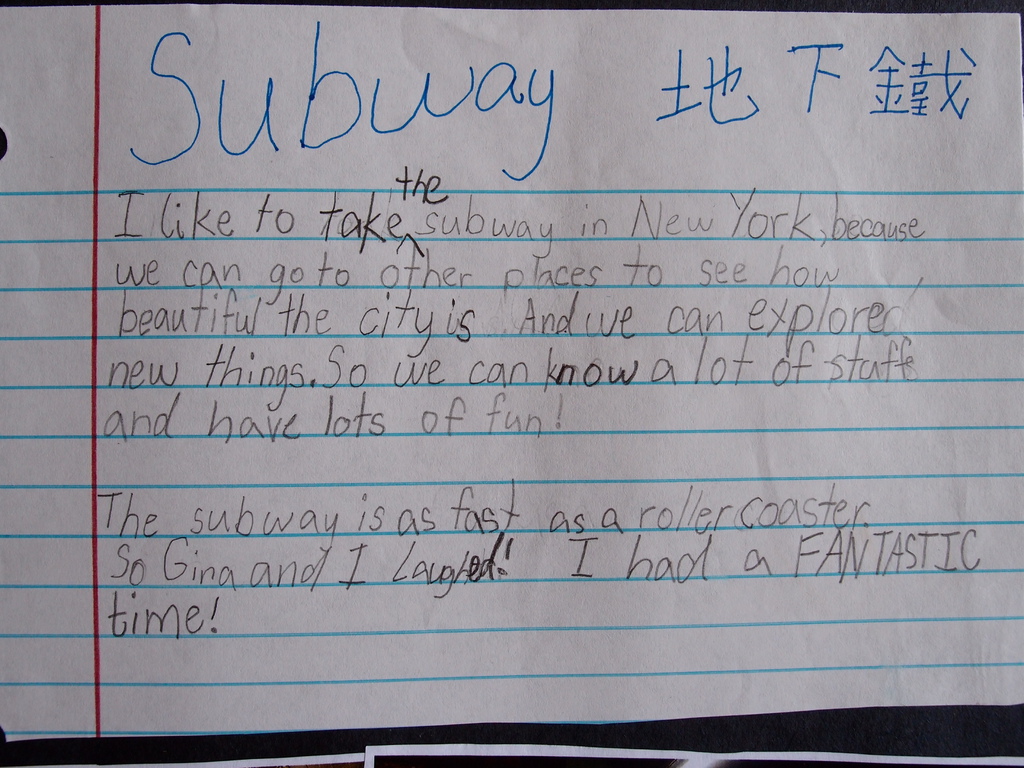 Subway 地下鐵
I like to take the subway in New York, because
we can go to other places to see how
beautiful the city is. And we can explore
new things. So we can know a lot of stuff
and have lots of fun!
The subway is as fast as a roller coaster.
So Gina and I Laughed! I had a FANTASTIC
time!